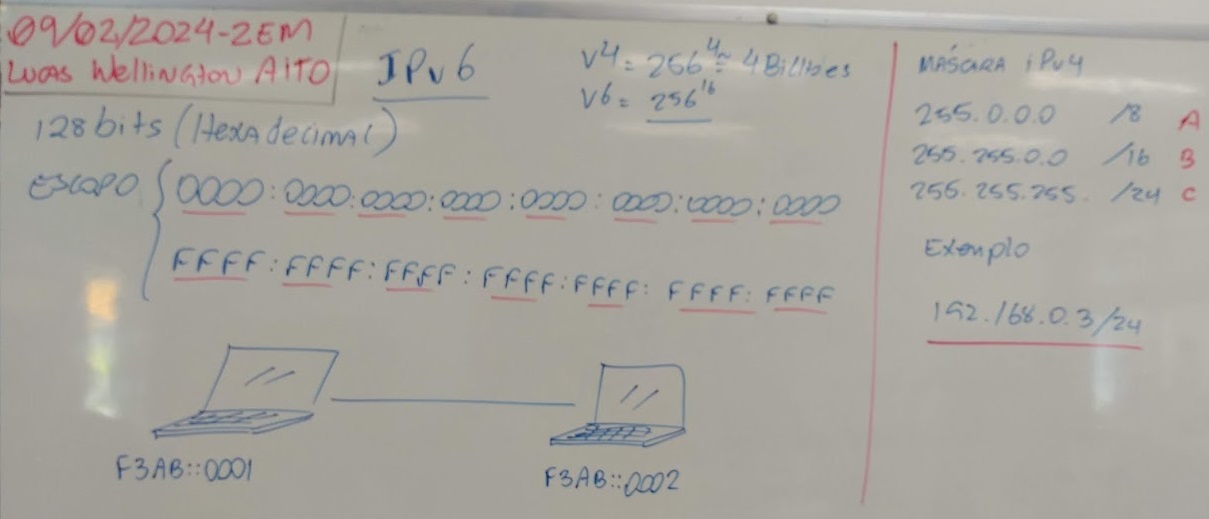 09/02/2024-2EM
Lucas Wellington AITO
IPv6
128 bits (Hexadecimal)
V4 = 256⁴ ≅ 4 Bilhões
V6 = 256¹⁶
ESCOPO { 0000:0000:0000:0000:0000:0000:0000:0000
FFFF:FFFF:FFFF:FFFF:FFFF:FFFF:FFFF
F3AB::0001
F3AB::0002
MÁSCARA iPv4
255.0.0.0 /8 A
255.255.0.0 /16 B
255.255.255. /24 C
Exemplo
192.168.0.3/24